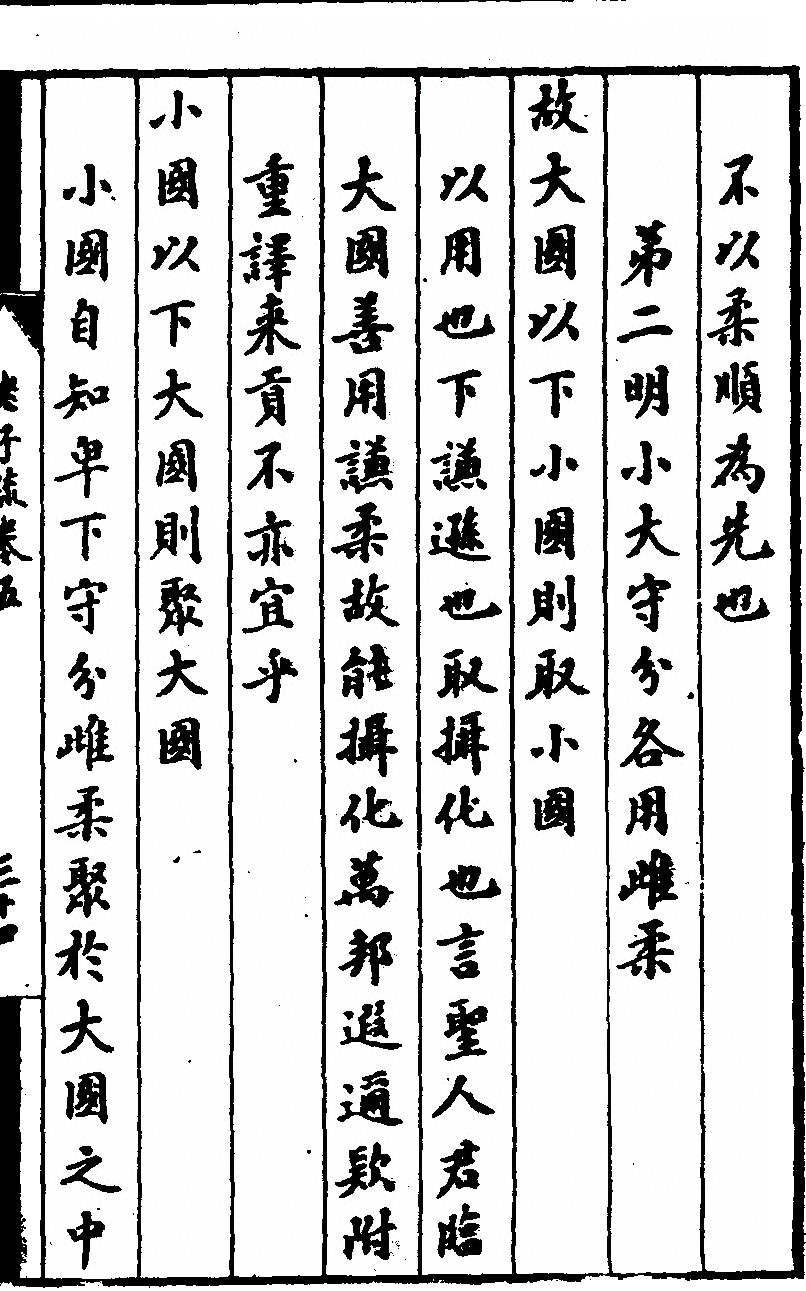 不以柔順為先也
苐二明小大守分各用雌柔
故大國以下小國則取小國
以用也下謙遜也取攝化也言聖人君臨
大國善用謙柔故能攝化萬邦遐邇欵附
重譯来貢不亦宜乎
小國以下大國則聚大國
小國自知卑下守分雌柔聚於大國之中
老子疏卷五
三十四